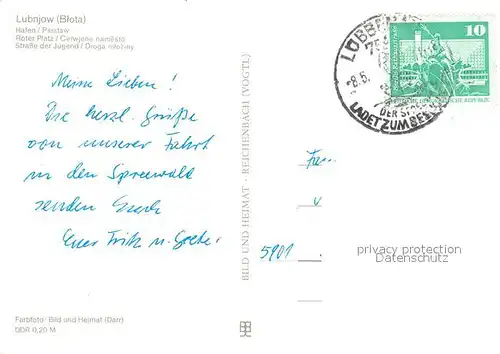 Lubnjow (Błota)
Hafen / Pśistaw
Roter Platz / Cerwjene naměsto
Straße der Jugend / Droga młoźiny
Meine Lieben!
Die herzl. Grüße
von unserer Fahrt
in den Spreewald
senden Euch
Euer Fritz u.
BILD UND HEIMAT · REICHENBACH (VOGTL)
Farbfoto: Bild und Heimat (Darr)
DDR 0,20 M
LÜBBEN
8.6.
LADET ZUM BES
10
DEUTSCHE DEMOKRATISCHE REPUBLIK
Fam.
5901
privacy protection
Datenschutz